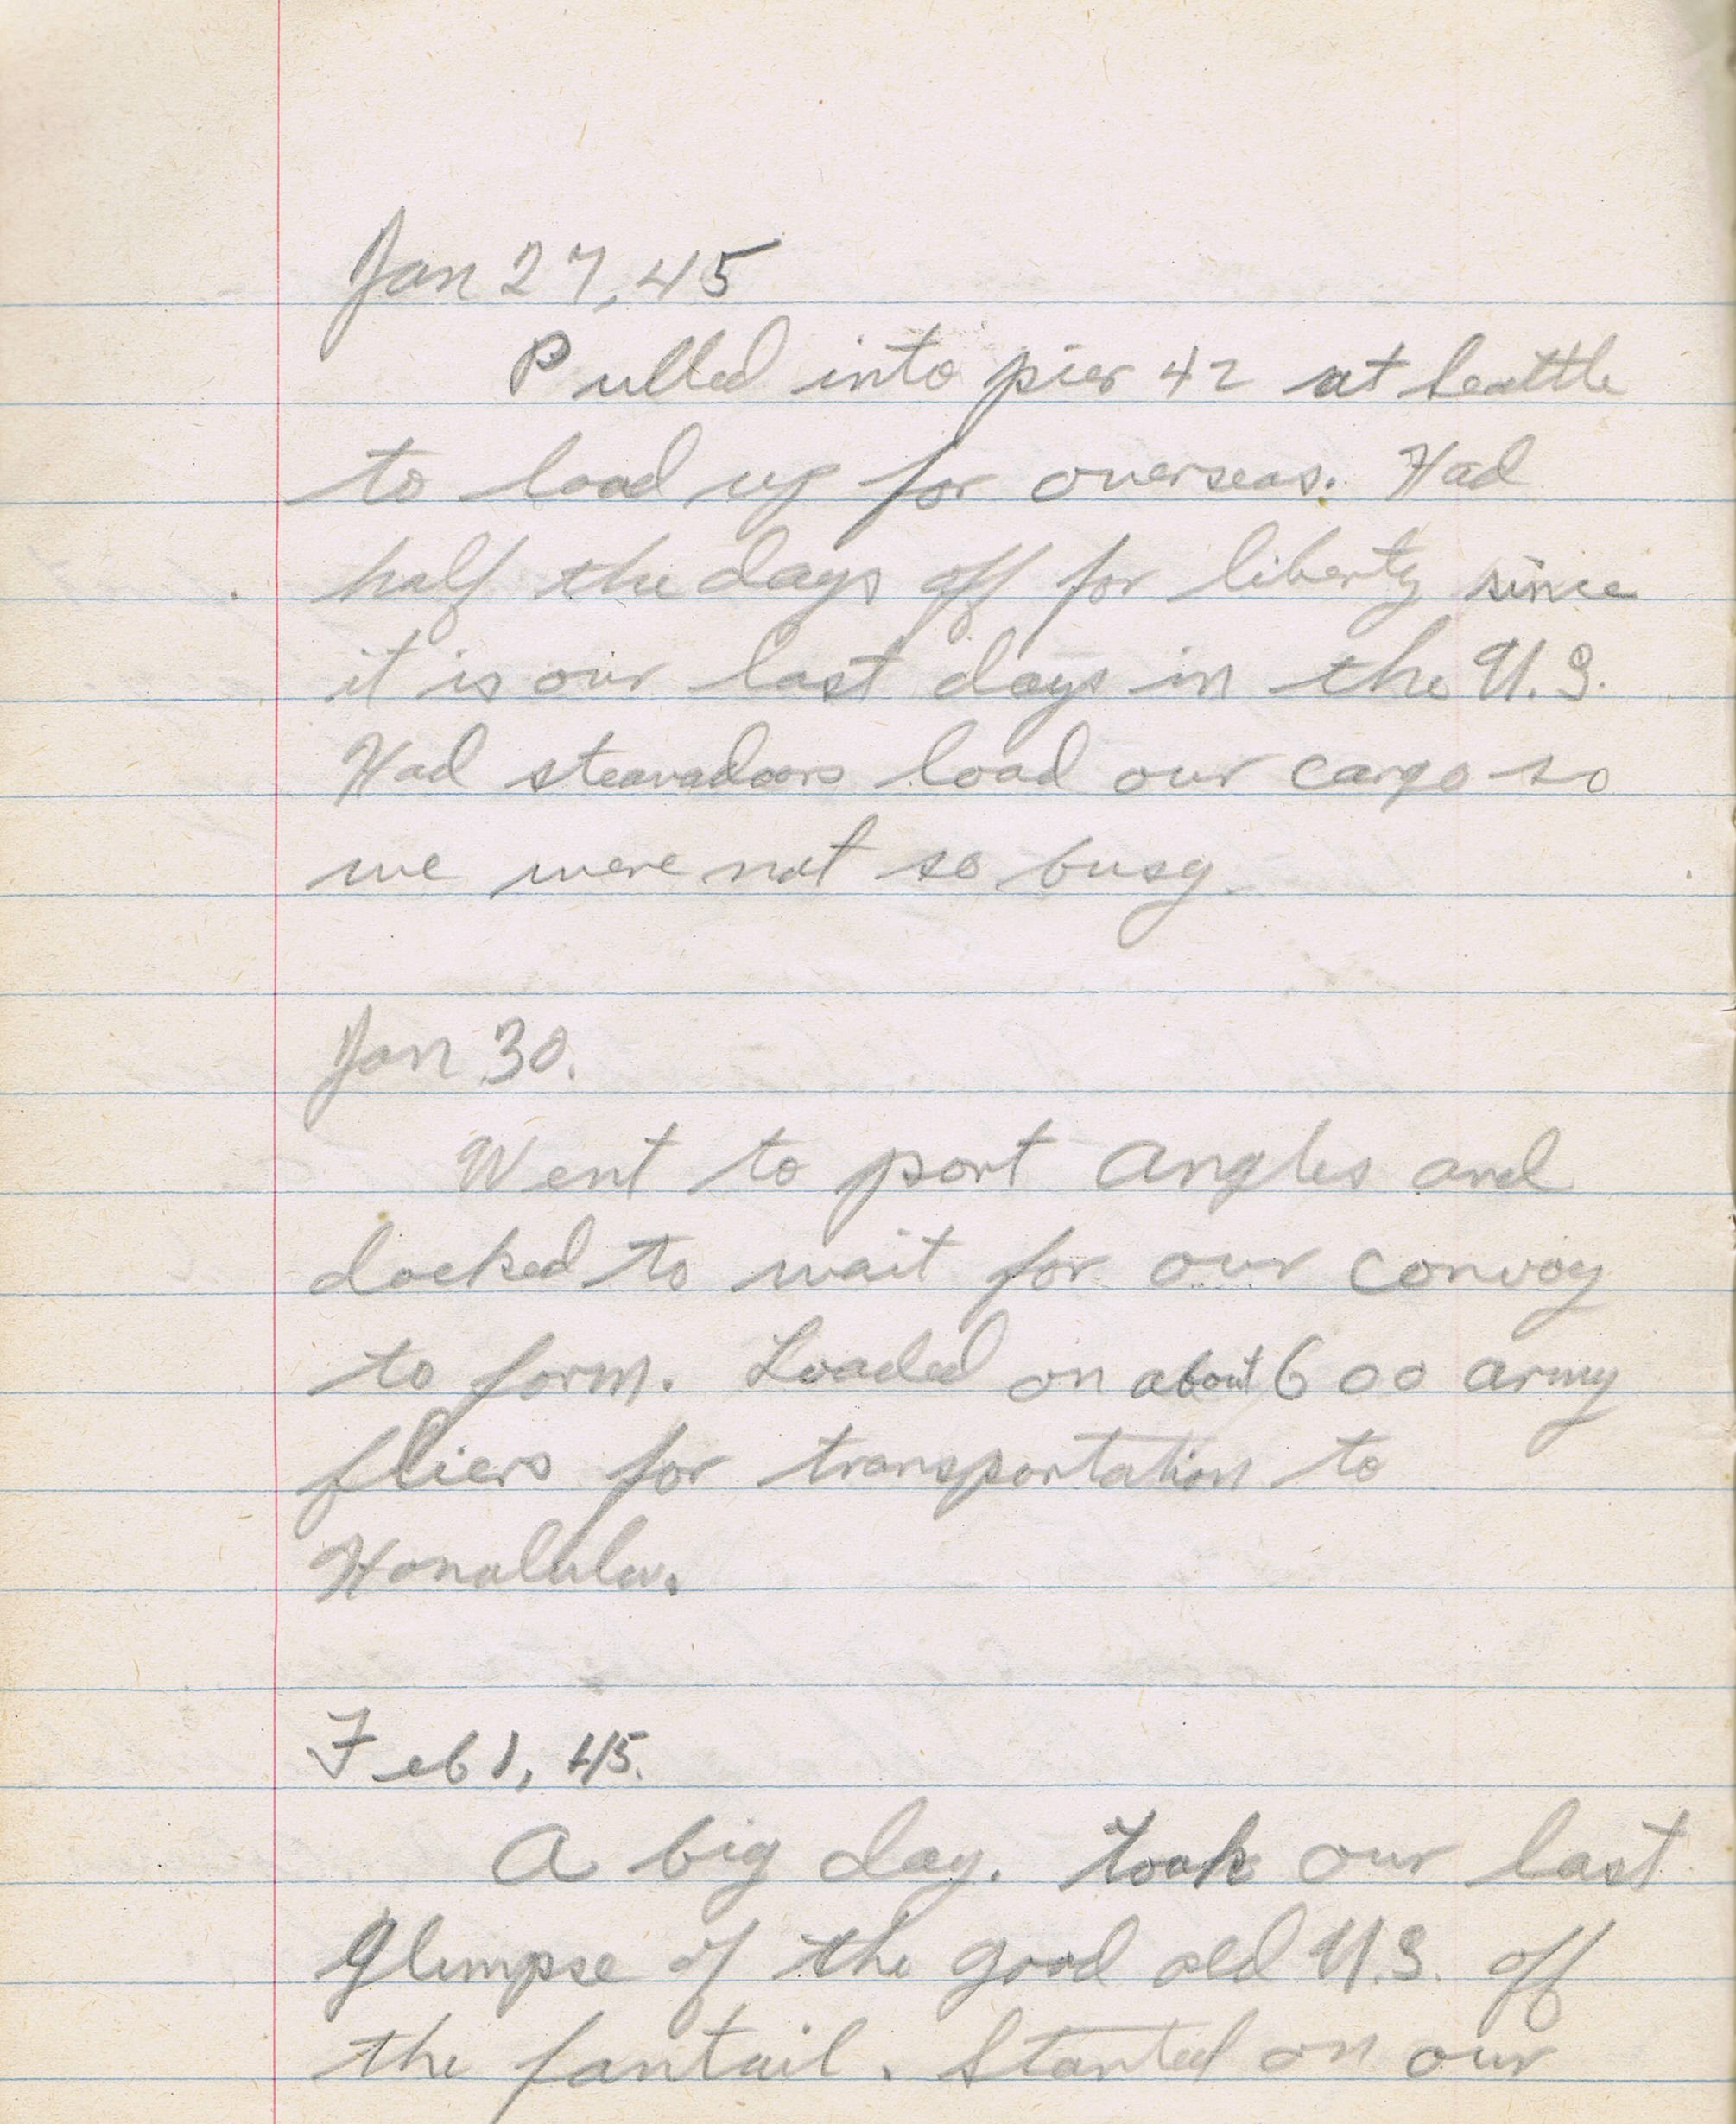 Jan 27, 45
Pulled into pier 42 at Seattle
to load up for overseas. Had
half the days off for liberty since
it is our last days in the U.S.
Had steavadoors load our cargo so
we were not so busy.
Jan 30.
Went to port Angles and
docked to wait for our convoy
to form. Loaded on about 600 army
fliers for transportation to
Honalulu.
Feb 1, 45.
A big day. Took our last
glimpse of the good old U.S. off
the fantail. Started on our